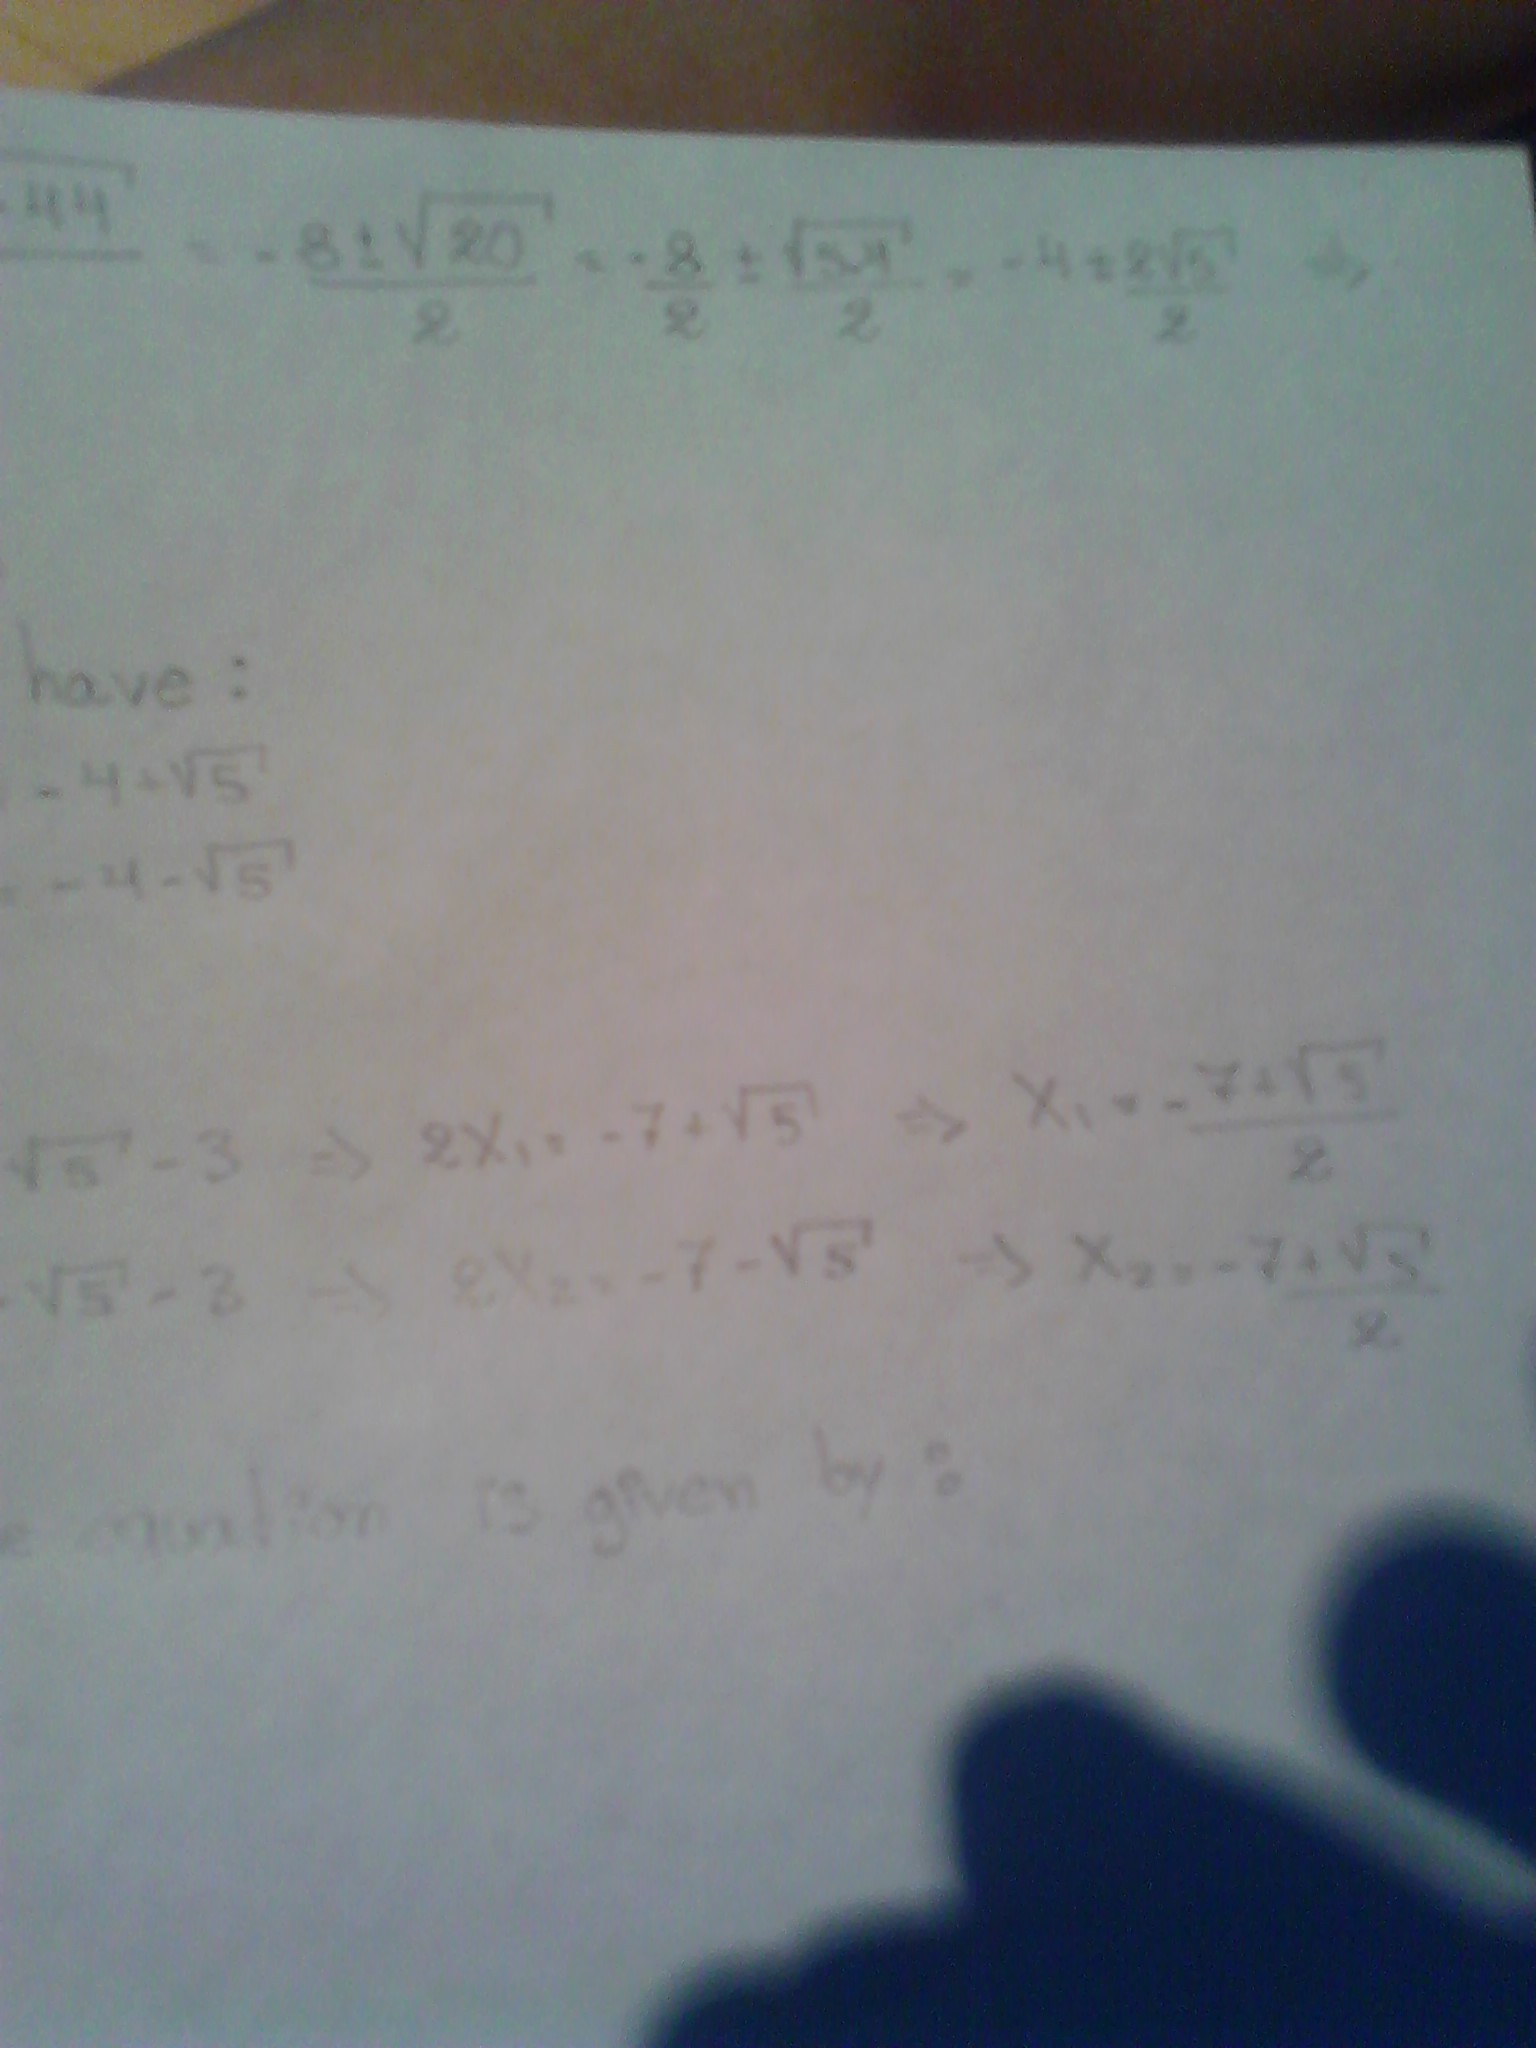 ·44 = -8±√20/2 = -8/2 ± √5.4/2 = -4 ± 2√5/2 ⇒
have:
-4+√5
= -4-√5
√5 - 3 ⇒ 2X₁ = -7+√5 ⇒ X₁ = -7+√5/2
-√5 - 3 ⇒ 2X₂ = -7-√5 ⇒ X₂ = -7+√5/2
is given by: